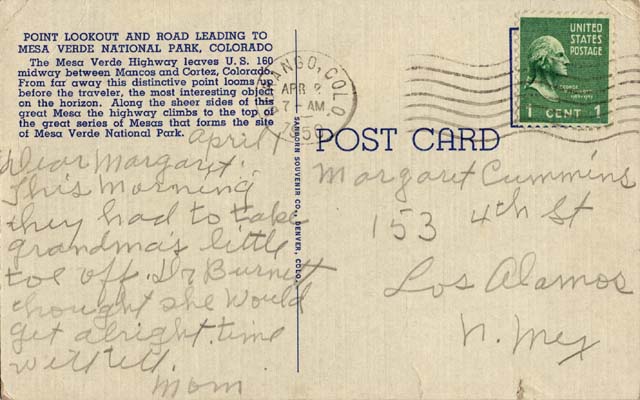 POINT LOOKOUT AND ROAD LEADING TO
MESA VERDE NATIONAL PARK, COLORADO
The Mesa Verde Highway leaves U. S. 160
midway between Mancos and Cortez, Colorado.
From far away this distinctive point looms up
before the traveler, the most interesting object
on the horizon. Along the sheer sides of this
great Mesa the highway climbs to the top of
the great series of Mesas that forms the site
of Mesa Verde National Park.
April 1
Dear Margaret:
This Morning
they had to take
grandma's little
toe off. Dr Burnett
thought she would
get alright. time
will tell.
Mom
SANBORN SOUVENIR CO., DENVER, COLO.
ANGO, COLO.
APR
7 - AM
1950
UNITED
STATES
POSTAGE
1 CENT 1
POST CARD
Margaret Cummins
153 4th St
Los Alamos
N. Mex